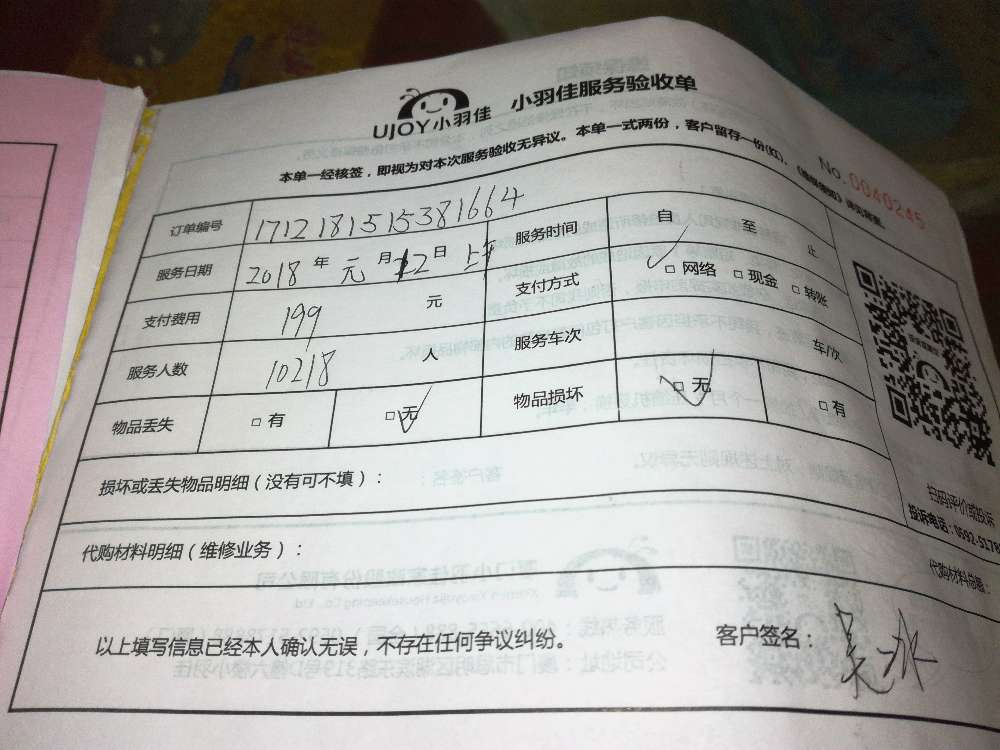 UJOY小羽佳 小羽佳服务验收单
本单一经核签，即视为对本次服务验收无异议。本单一式两份，客户留存一份(红)、
No.0040245
订单编号 1712181515381664
服务日期 2018年元月12日上午 服务时间 自 至 止
支付费用 199 元 支付方式 □网络 □现金 □转账
服务人数 10218 人 服务车次 车/次
物品丢失 □有 □无 物品损坏 □无 □有
损坏或丢失物品明细（没有可不填）：
扫码评价或投诉
投诉电话：0592-5178
代购材料明细（维修业务）：
代购材料总额：
以上填写信息已经本人确认无误，不存在任何争议纠纷。 客户签名：